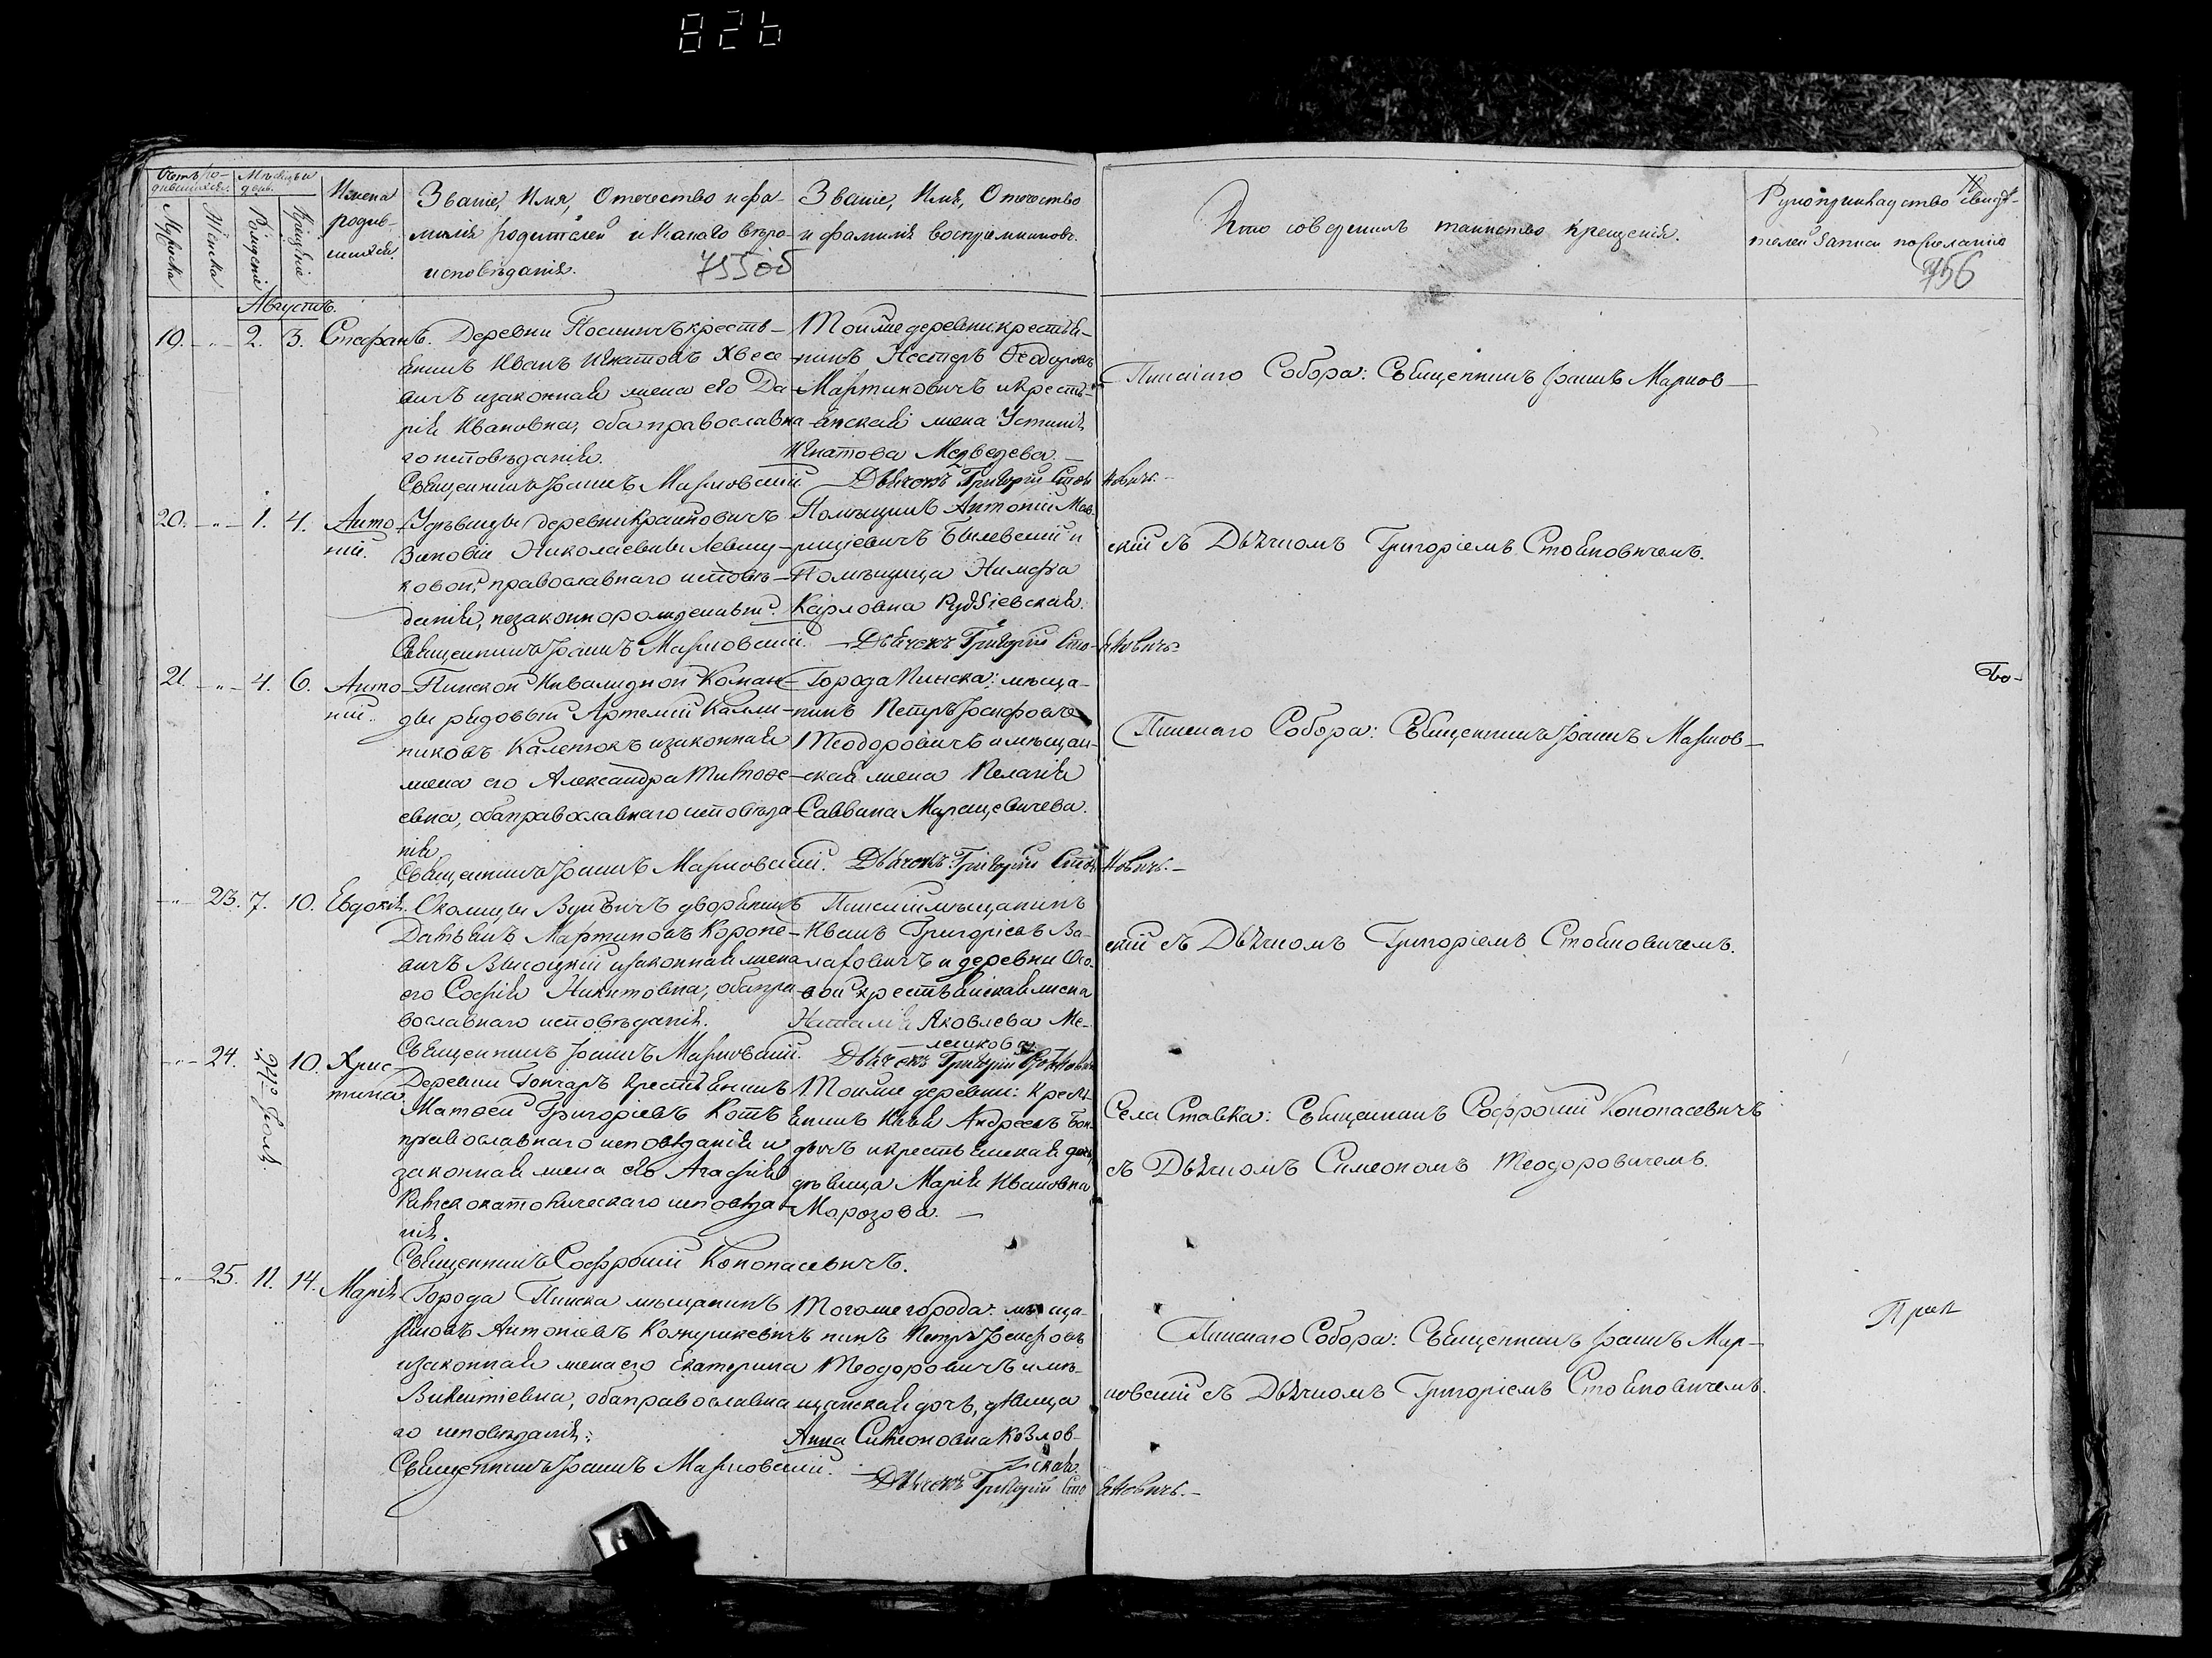 826
Счетъ ро-
дившихся.
Мѣсяцъ и
день.
Мужска
Женска
Рожденіе
Крещеніе
Имена
родив-
шихся.
Званіе, Имя, Отечество и фа-
милія родителей и какаго вѣро-
исповѣданія.
755об
Званіе, Имя, Отечество
и фамилія воспріемниковъ.
Кто совершилъ таинство крещенія.
Рукоприкладство свидѣ-
телей записи по желанію
756
Августъ.
19. -"- 2. 3. Стефанъ.
Деревни Посничъ крестья-
янинъ Иванъ Игнатовъ Хвесе-
вичъ и законная жена его Да-
рія Ивановна, оба православна-
го исповѣданія.
Священникъ Іоаннъ Марновскій
Той же деревни: крестья-
нинъ Нестеръ Ѳеодоровъ
Мартиновичъ и кресть-
янская жена Устинія
Игнатова Медведева.
Дьячокъ Григорій Стоя
новичъ.
Пинскаго Собора: Священникъ Іоаннъ Марнов-
20. -"- 1. 4. Анто-
ній.
деревни Крайновичъ
Зиновіи Николаевны Левшу-
ковой, православнаго исповѣ-
данія, незаконнорожденный.
Священникъ Іоаннъ Марновскій.
Помѣщикъ Антоній Мав-
рицiевичъ Былевскій и
Помѣщица Нимфа
Карловна Рудзіевская.
Дьячокъ Григорій Сто-
яновичъ.
скій съ Дьячкомъ Григоріемъ Стояновичемъ.
21. -"- 4. 6. Анто-
ній.
Пинской Инвалидной Коман-
ды рядовый Артемій Калли-
никовъ Каленюкъ и законная
жена его Александра Тимофе-
евна, оба православнаго исповѣда-
нія
Священникъ Іоаннъ Марновскій.
Города Пинска: мѣща-
нинъ Петръ Іосифовъ
Теодоровичъ и мѣщан-
ская жена Пелагія
Саввина Марацевичева.
Дьячокъ Григорій Стоя
новичъ.
Пинскаго Собора: Священникъ Іоаннъ Марнов-
Бо-
-"- 23. 7. 10. Евдокія.
Околицы Вуйвичъ дворянинъ
Даміянъ Мартиновъ Короне-
вичъ Высоцкій и законная жена
его Софія Никитовна, оба пра-
вославнаго исповѣданія.
Священникъ Іоаннъ Марновскій.
Пинскій мѣщанинъ
Иванъ Григоріевъ Ва-
лаховичъ и деревни Осо-
вой крестьянская жена
Наталія Яковлева Ме-
лешкова.
Дьячокъ Григорій Стояновичъ
скій съ Дьячкомъ Григоріемъ Стояновичемъ.
-"- 24. 24го Іюля. 10. Хрис-
тина
Деревни Гончаръ крестьянинъ
Матѳей Григоріевъ Котъ
православнаго исповѣданія и
законная жена его Агафія
Римскокатолическаго исповѣда-
нія.
Священникъ Софроній Конопасевичъ.
Той же деревни: кресть-
янинъ Илія Андреевъ Бон-
дичъ и крестьянская дочь
дѣвица Марія Ивановна
Марозова.
Села Ставка: Священникъ Софроній Конопасевичъ
съ Дьячкомъ Симеономъ Теодоровичемъ.
-"- 25. 11. 14. Марія
Города Пинска мѣщанинъ
Антоніевъ Кожушкевичъ
и законная жена его Екатерина
Викентіевна, оба православна
го исповѣданія.
Священникъ Іоаннъ Марновскій.
Того же города: мѣща-
нинъ Петръ Іосифовъ
Теодоровичъ и мѣ-
щанская дочь, дѣвица
Анна Симеоновна Козлов-
ская.
Дьячокъ Григорій Сто
яновичъ.
Пинскаго Собора: Священникъ Іоаннъ Мар-
новскій съ Дьячкомъ Григоріемъ Стояновичемъ.